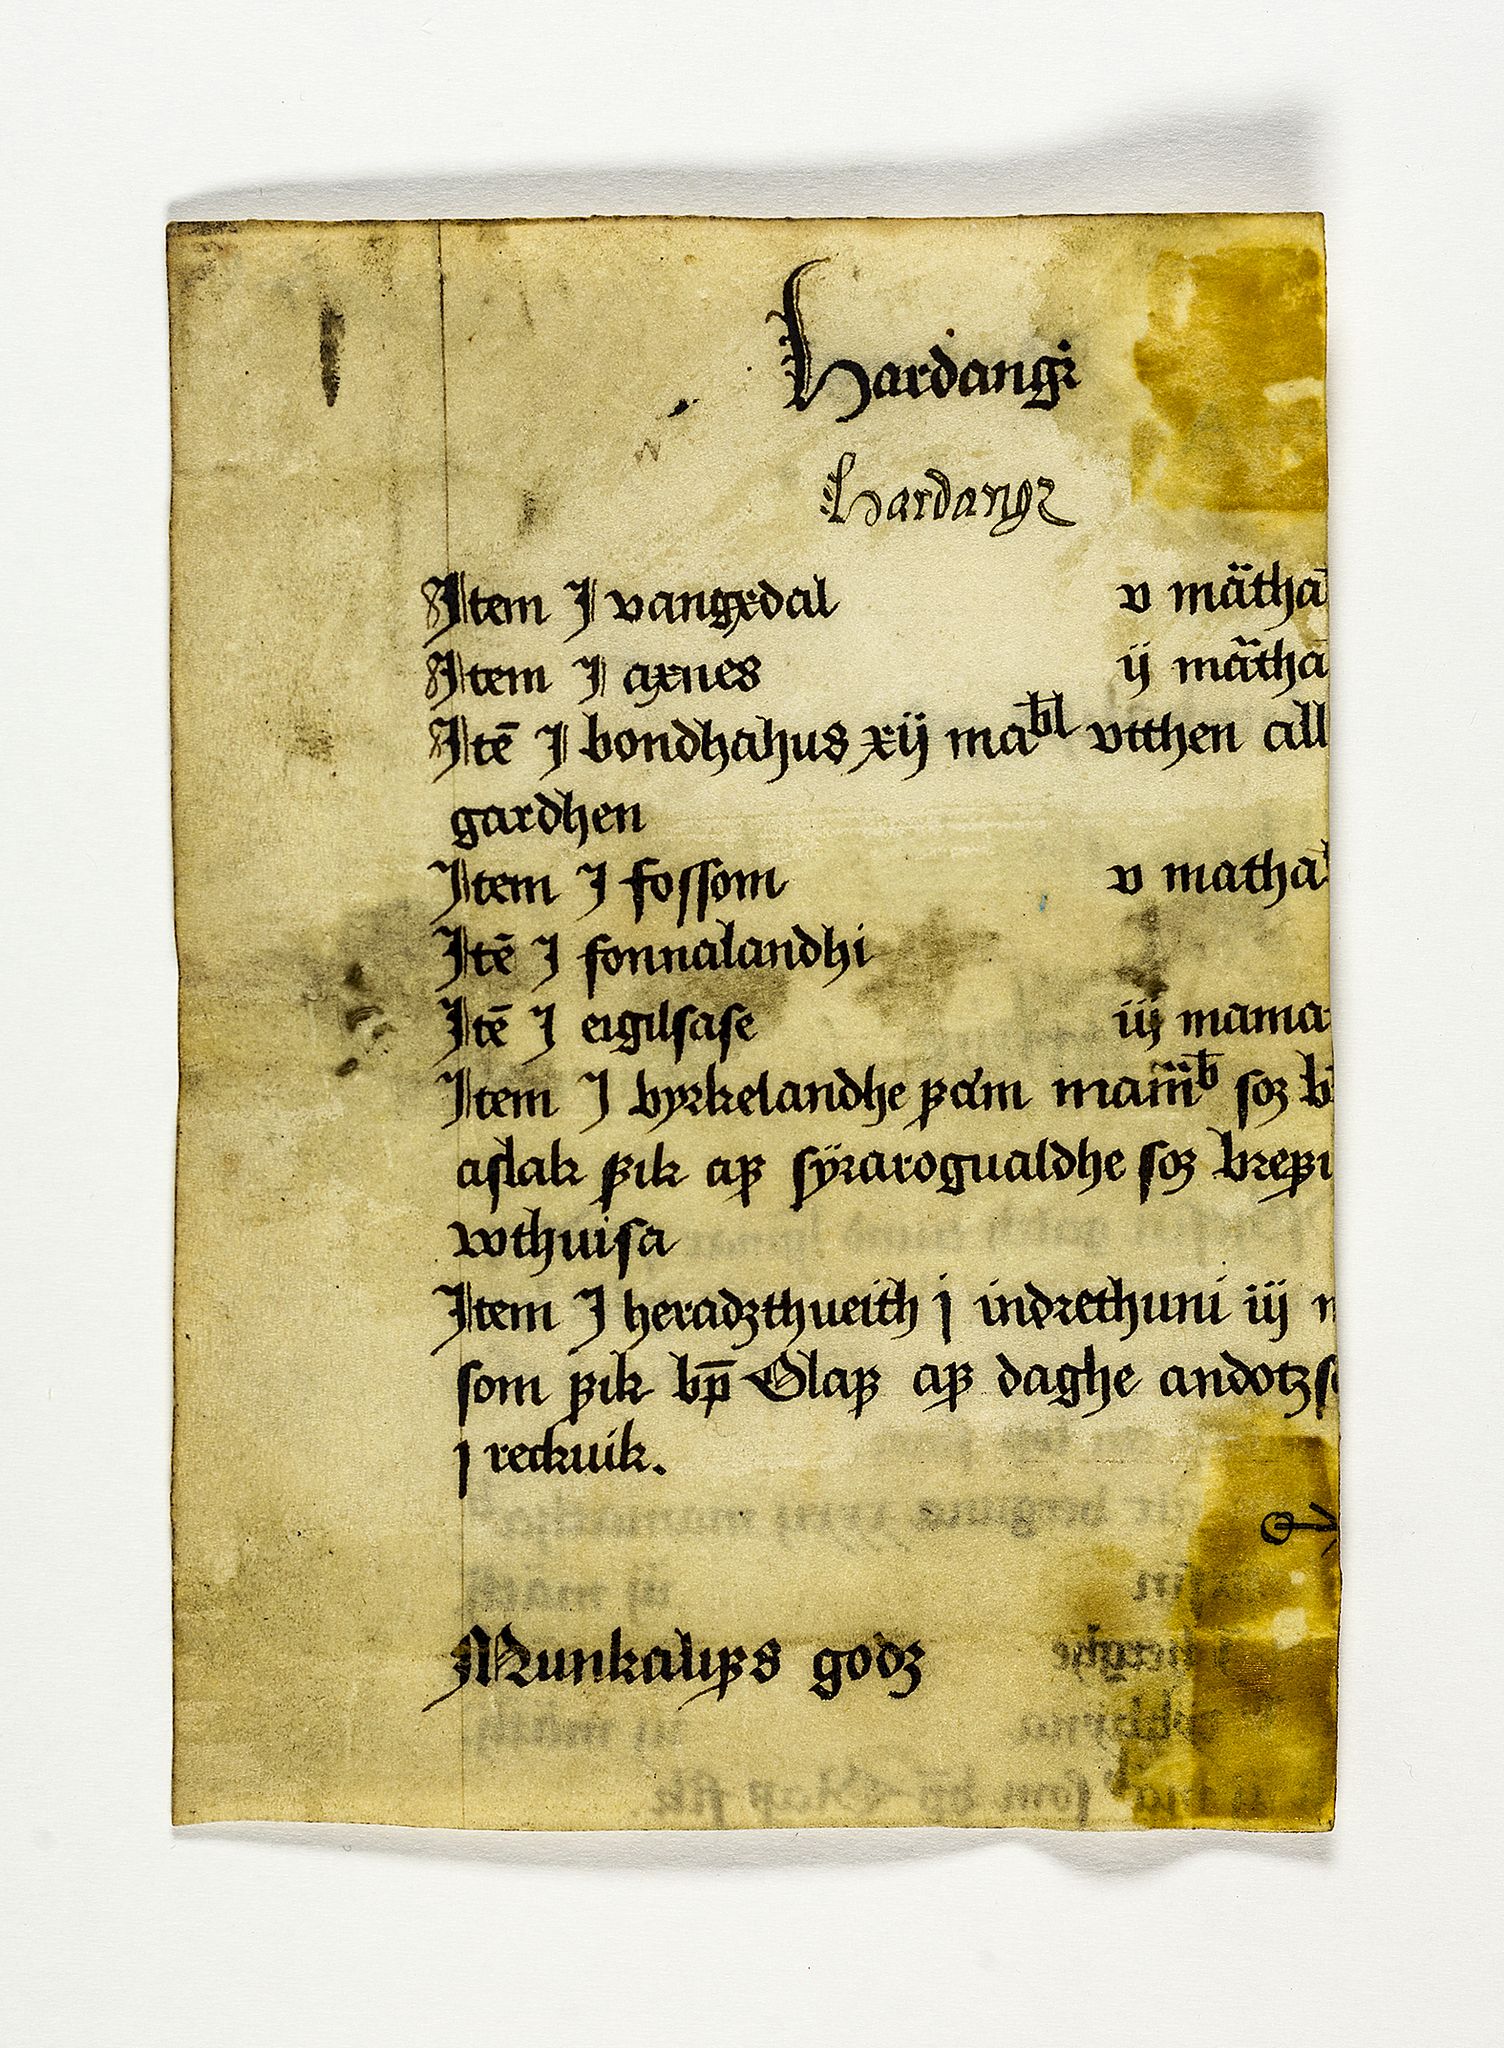 hardangr
hardangr
Item J vangxdal v mätha
Item J axnes ij mätha
Itē J bondhahus xij ma bl vtthen all
gardhen
Item J fossom v matha
Itē J fonnalandhi
Itē J eigilsase iij mama
Item J byrkelandhe som b
aslak fik aff syrarogualdhe som
wthuisa
Item J heradzthueith j indrethuni iij m
som fik bp̄ Olaff aff daghe andotzs
j reckuik.
Munkaliffs godz